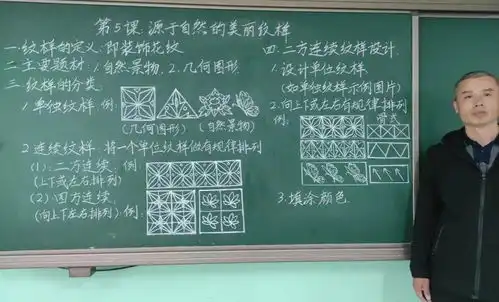 第5课 源于自然的美丽纹样
一 纹样的定义:即装饰花纹
二 主要题材:1.自然景物 2.几何图形
三 纹样的分类
1 单独纹样 例:
(几何图形) (自然景物)
2 连续纹样:将一个单位纹样做有规律排列
(1):二方连续:例
(上下或左右排列)
(2) 四方连续:
(向上下左右排列) 例:
四.二方连续纹样设计.
1.设计单位纹样
(如单独纹样示例图片)
2.向上下或左右有规律排列
例:
骨式
3.填涂颜色